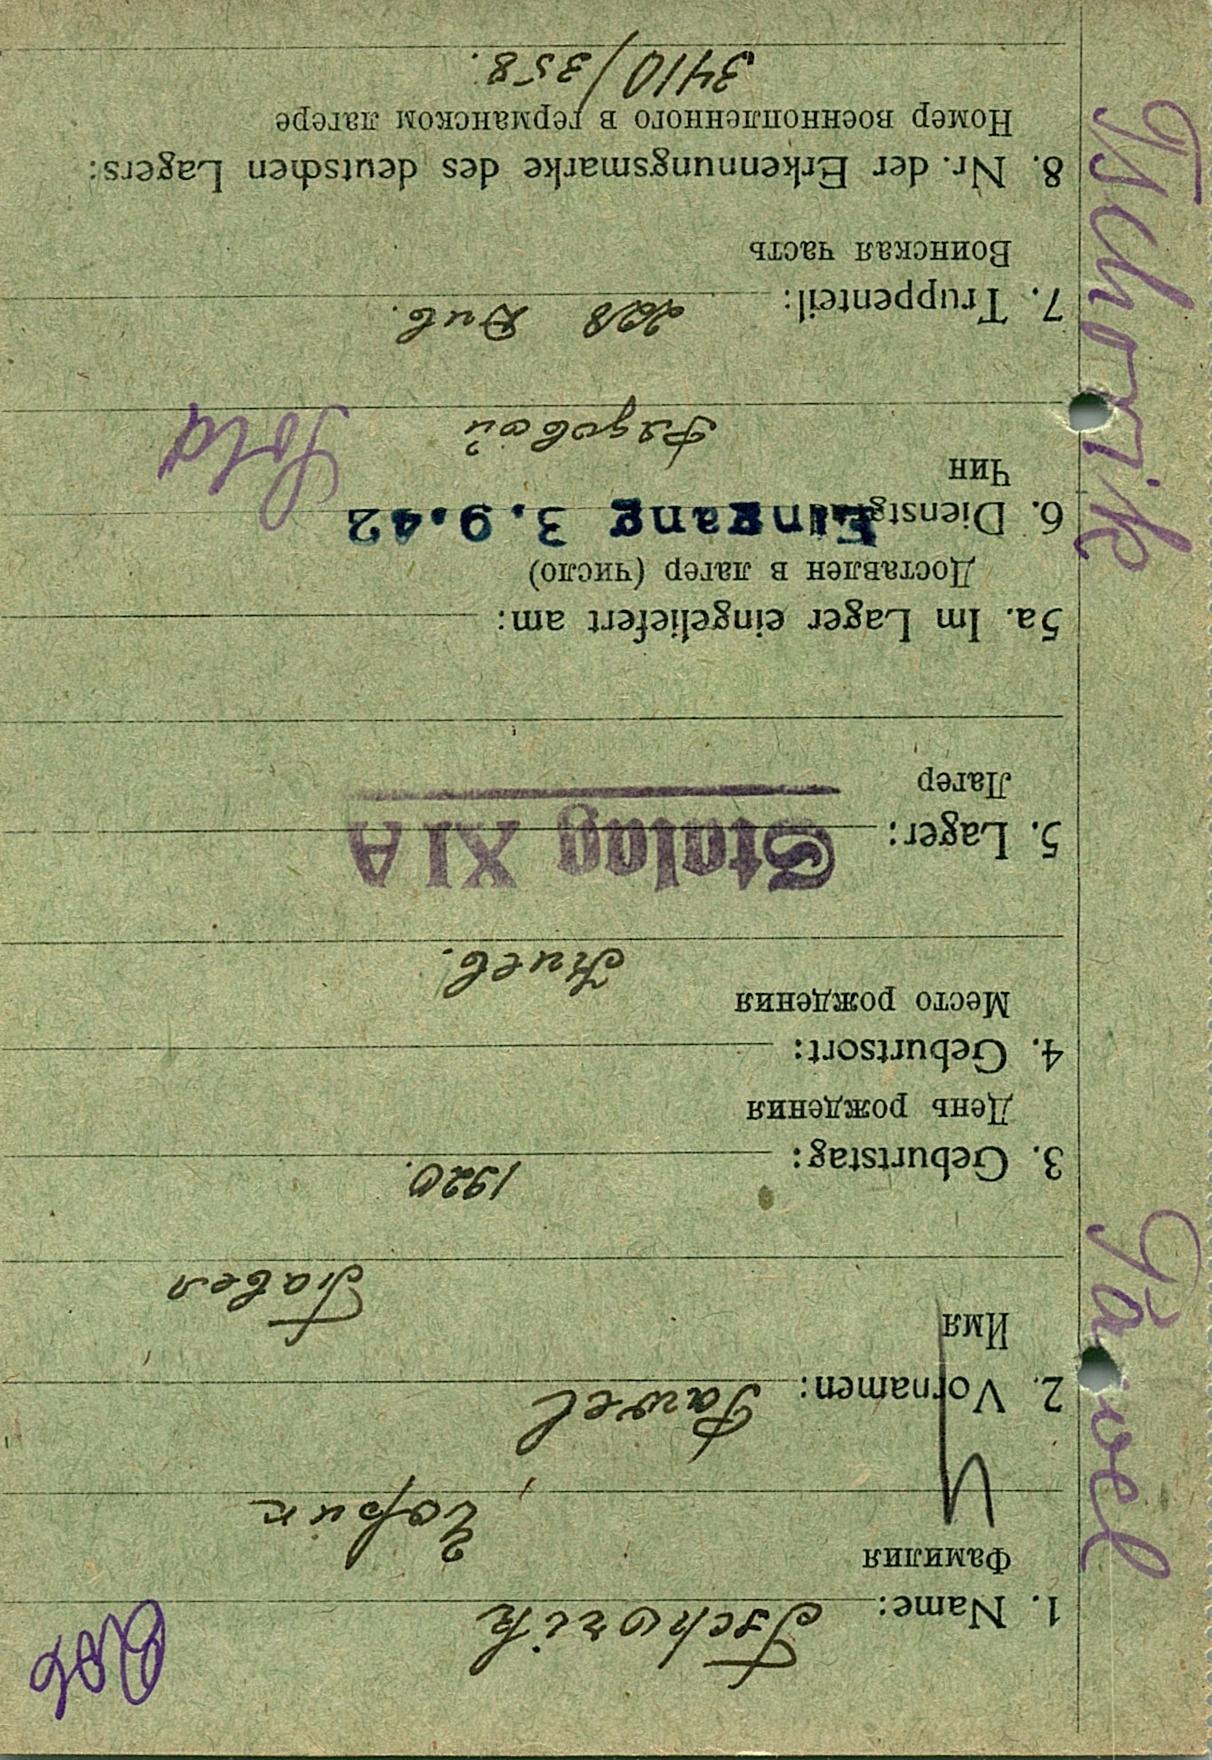 Tschorik Pawel
1. Name: Tschorik
Фамилия Чорик
2. Vornamen: Pawel
Имя Павел
3. Geburtstag: 1920.
День рождения
4. Geburtsort:
Место рождения Киев.
5. Lager: Stalag XI A
Лагер
5a. Im Lager eingeliefert am:
Доставлен в лагер (число)
6. Dienstgrad: Eingang 3.9.42
Чин Рядовой Sold
7. Truppenteil: 228 Див.
Воинская часть
8. Nr. der Erkennungsmarke des deutschen Lagers:
Номер военнопленного в германском лагере
3410/358.